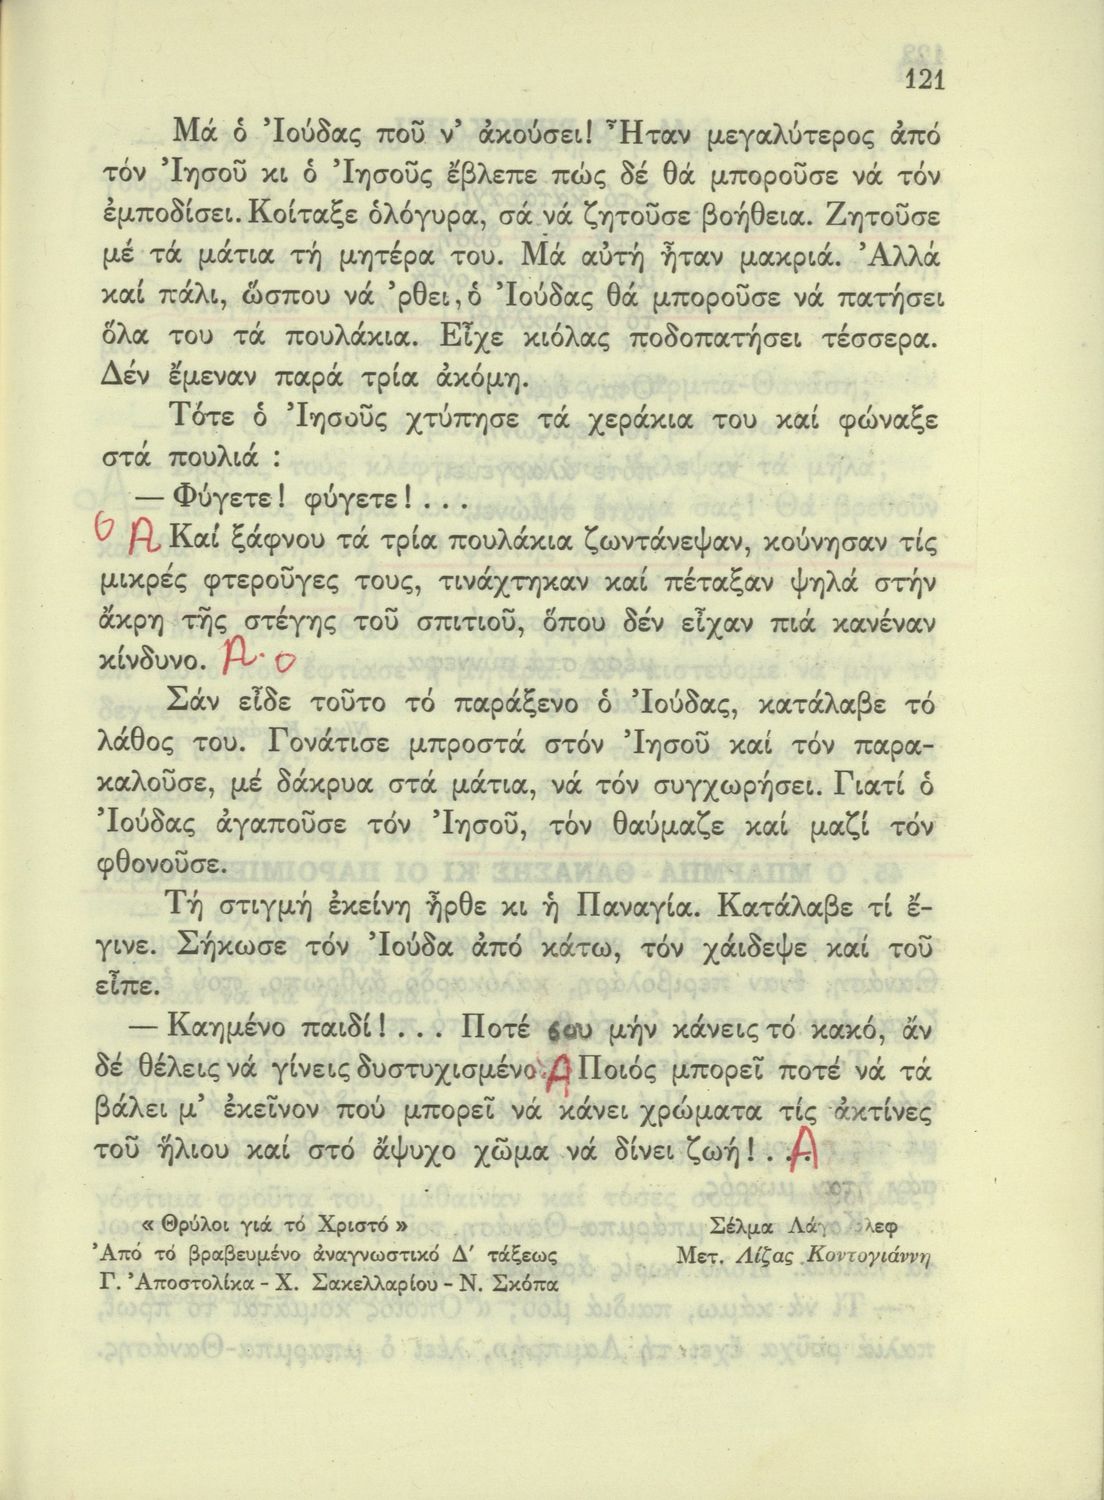 121
Μά ὁ Ἰούδας ποῦ ν’ ἀκούσει! Ἦταν μεγαλύτερος ἀπό
τόν Ἰησοῦ κι ὁ Ἰησοῦς ἔβλεπε πώς δέ θά μποροῦσε νά τόν
ἐμποδίσει. Κοίταξε ὁλόγυρα, σά νά ζητοῦσε βοήθεια. Ζητοῦσε
μέ τά μάτια τή μητέρα του. Μά αὐτή ἦταν μακριά. Ἀλλά
καί πάλι, ὥσπου νά ’ρθει, ὁ Ἰούδας θά μποροῦσε νά πατήσει
ὅλα του τά πουλάκια. Εἶχε κιόλας ποδοπατήσει τέσσερα.
Δέν ἔμεναν παρά τρία ἀκόμη.
Τότε ὁ Ἰησοῦς χτύπησε τά χεράκια του καί φώναξε
στά πουλιά :
— Φύγετε! φύγετε!...
Ο Α Καί ξάφνου τά τρία πουλάκια ζωντάνεψαν, κούνησαν τίς
μικρές φτεροῦγες τους, τινάχτηκαν καί πέταξαν ψηλά στήν
ἄκρη τῆς στέγης τοῦ σπιτιοῦ, ὅπου δέν εἶχαν πιά κανέναν
κίνδυνο. Α. Ο
Σάν εἶδε τοῦτο τό παράξενο ὁ Ἰούδας, κατάλαβε τό
λάθος του. Γονάτισε μπροστά στόν Ἰησοῦ καί τόν παρα-
καλοῦσε, μέ δάκρυα στά μάτια, νά τόν συγχωρήσει. Γιατί ὁ
Ἰούδας ἀγαποῦσε τόν Ἰησοῦ, τόν θαύμαζε καί μαζί τόν
φθονοῦσε.
Τή στιγμή ἐκείνη ἦρθε κι ἡ Παναγία. Κατάλαβε τί ἔ-
γινε. Σήκωσε τόν Ἰούδα ἀπό κάτω, τόν χάιδεψε καί τοῦ
εἶπε.
— Καημένο παιδί!... Ποτέ σου μήν κάνεις τό κακό, ἄν
δέ θέλεις νά γίνεις δυστυχισμένο. Α Ποιός μπορεῖ ποτέ νά τά
βάλει μ’ ἐκεῖνον πού μπορεῖ νά κάνει χρώματα τίς ἀκτίνες
τοῦ ἥλιου καί στό ἄψυχο χῶμα νά δίνει ζωή!... Α
« Θρύλοι γιά τό Χριστό »
Ἀπό τό βραβευμένο ἀναγνωστικό Δ′ τάξεως
Γ. Ἀποστολίκα - Χ. Σακελλαρίου - Ν. Σκόπα
Σέλμα
Μετ. Λίζας Κοντογιάννη